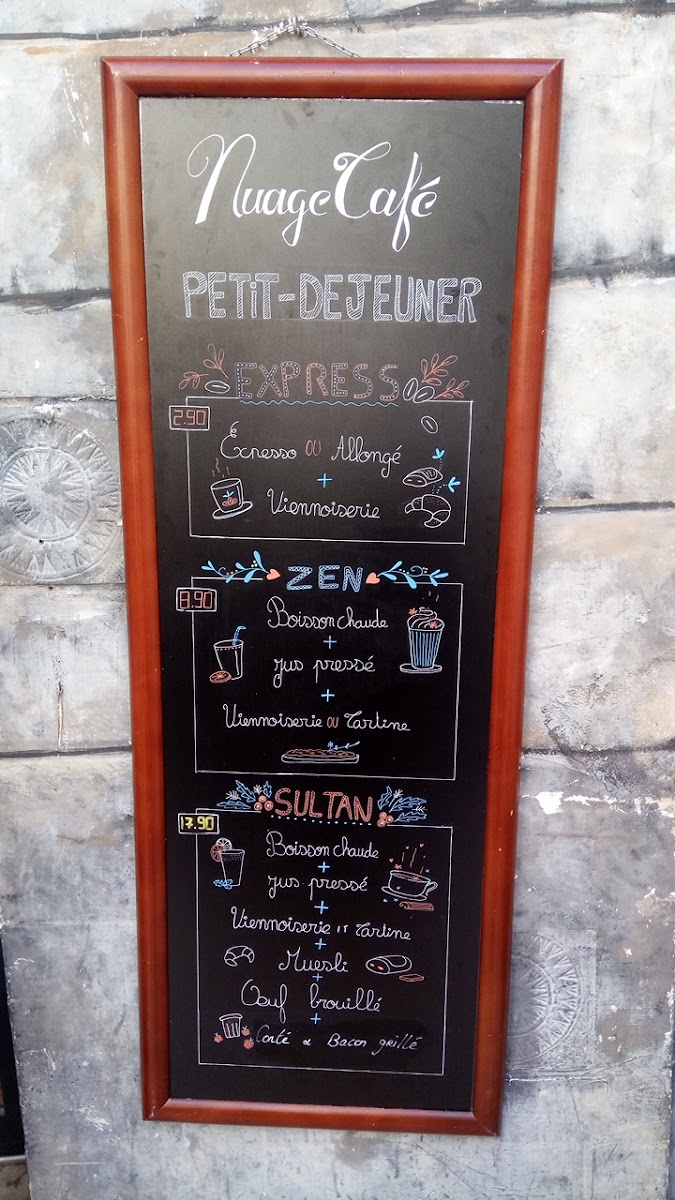 Nuage Café
PETIT-DEJEUNER
EXPRESS
2.90
Expresso ou Allongé
+
Viennoiserie
ZEN
8.90
Boisson chaude
+
jus pressé
+
Viennoiserie ou Tartine
SULTAN
17.90
Boisson chaude
+
jus pressé
+
Viennoiserie et Tartine
+
Muesli
+
Œuf brouillé
+
Comté & Bacon grillé